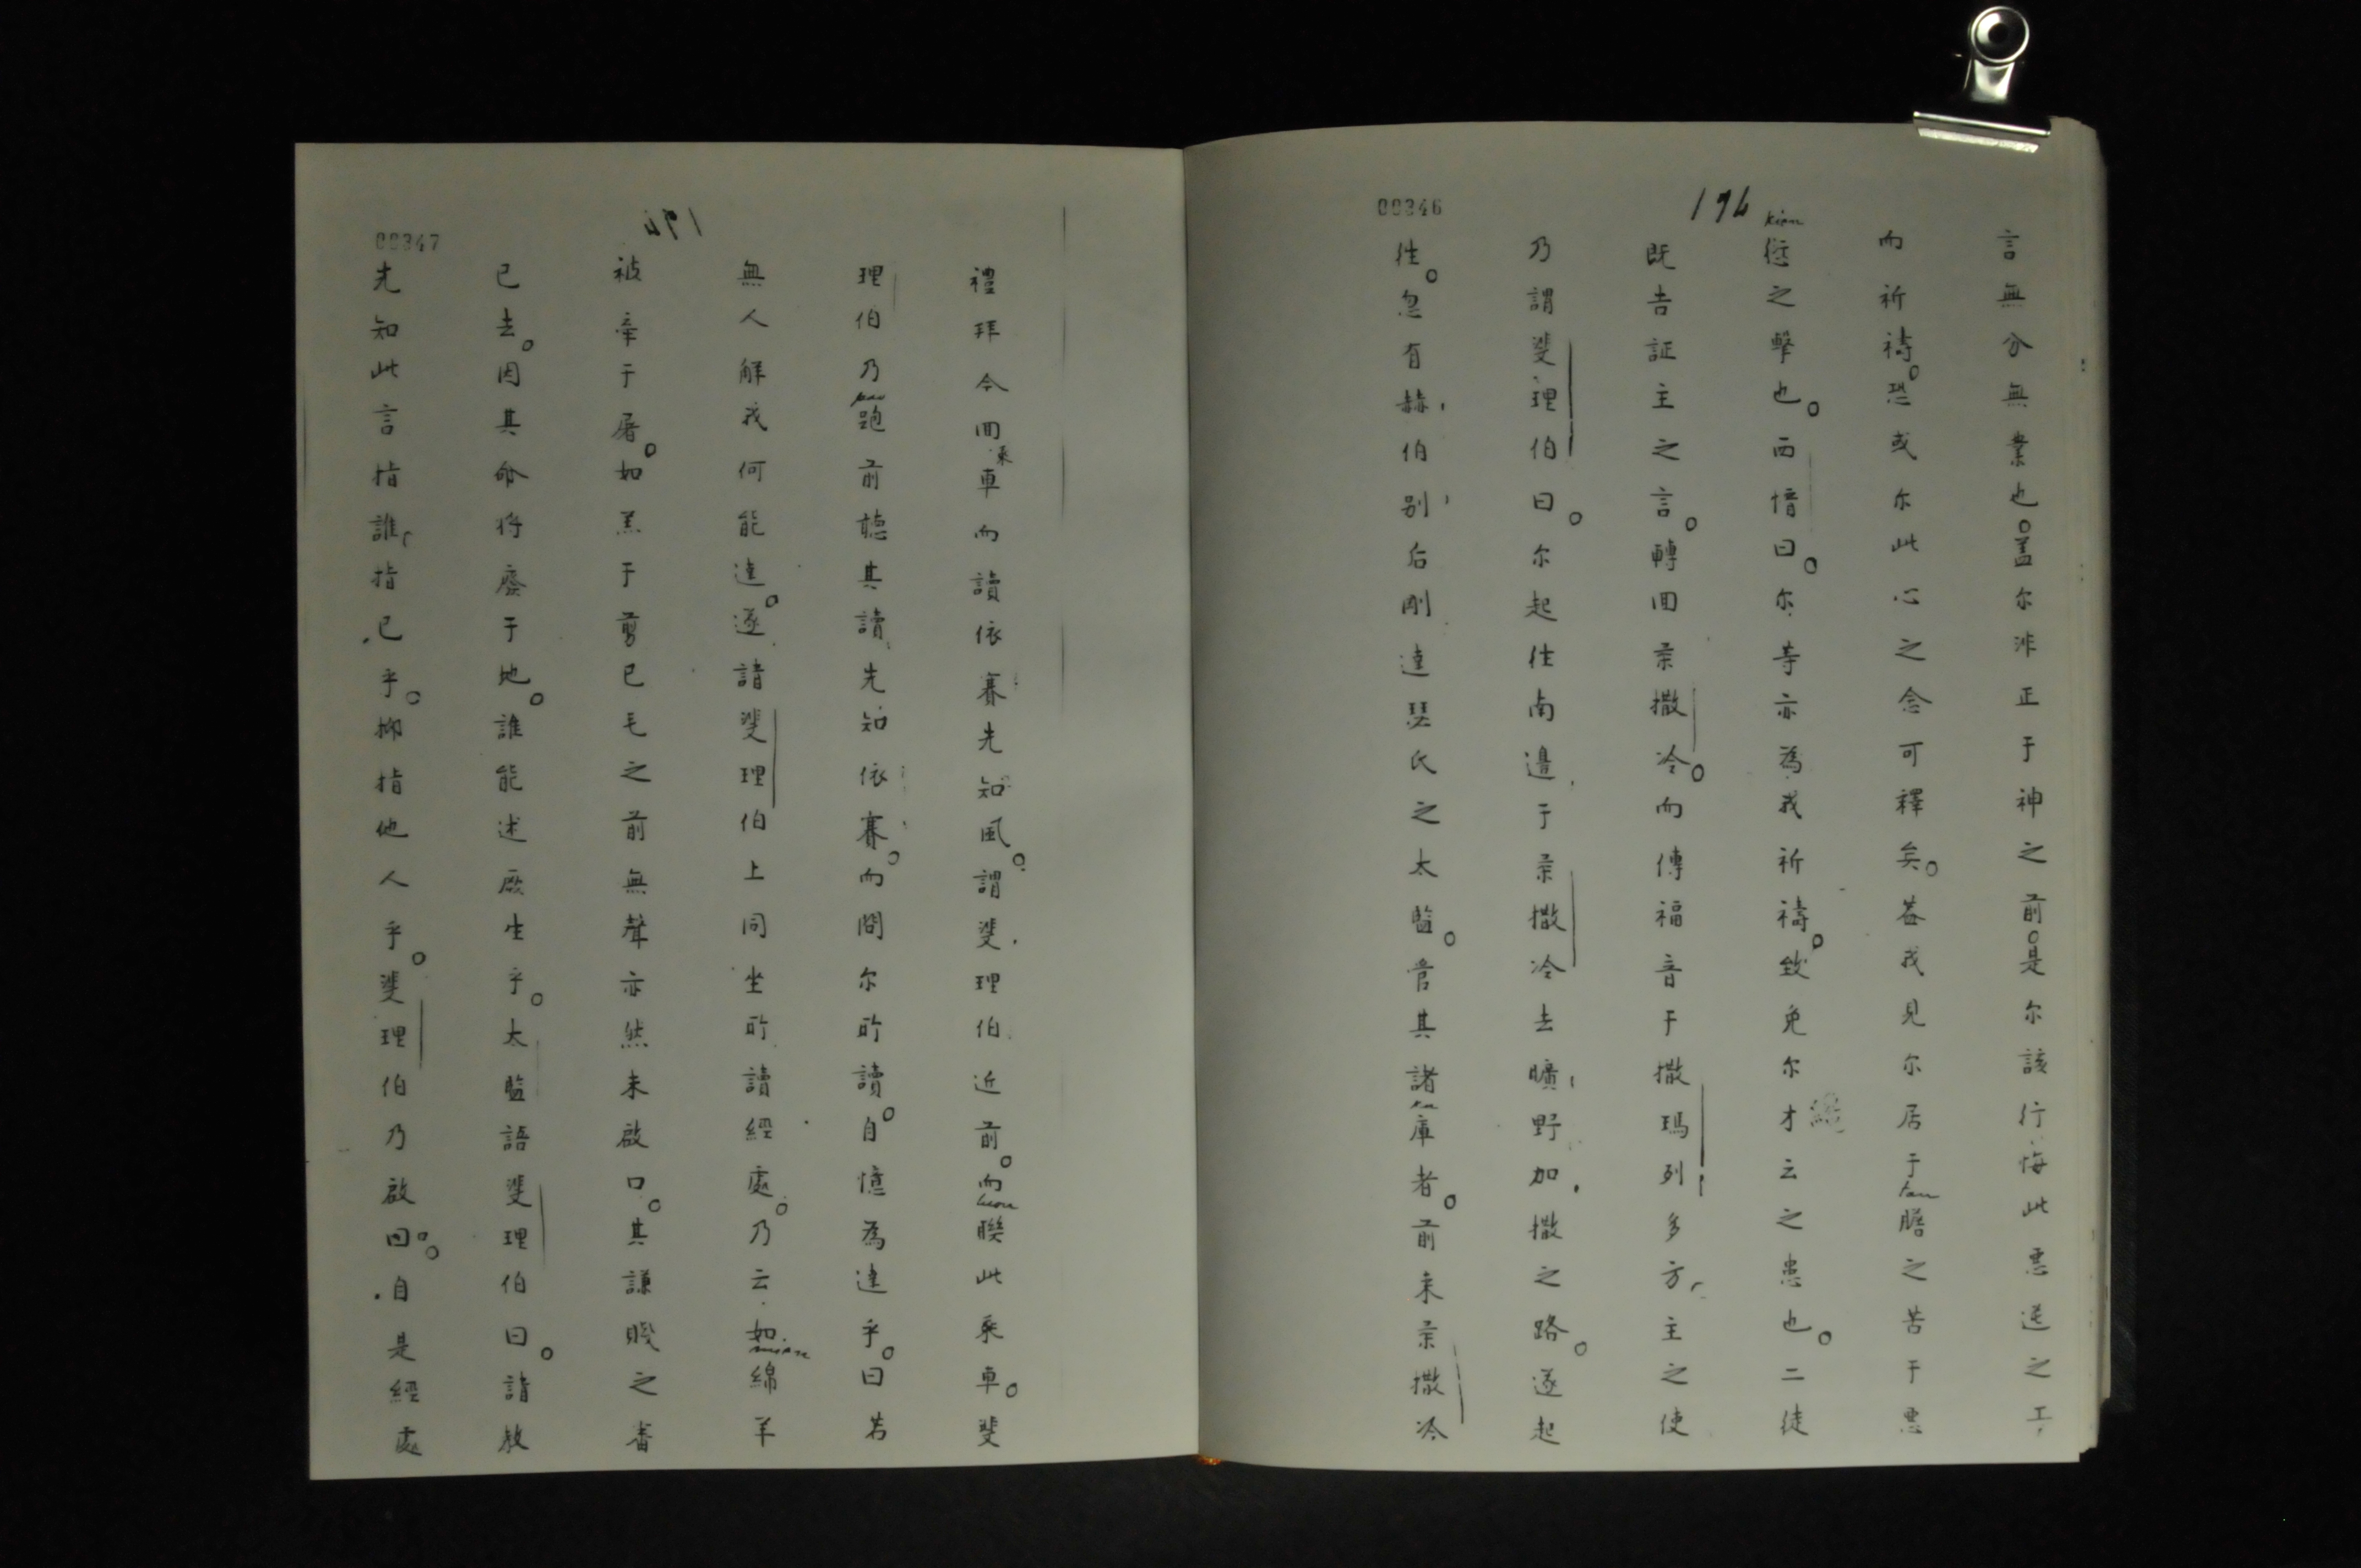 00346
194
言無分無業也。盖尔非正于神之前。是尔該行悔此惡送之工
而祈禱。恐或尔此心之念可釋矣。盖我見尔居于膽之苦于惡
kien
愆之擊也。西愔曰。尔等亦為我祈禱。致免尔才云之患也。二徒
既吉証主之言。轉回柔撒冷。而傳福音于撒瑪列多方主之使
乃謂斐理伯曰。尔起往南邊于柔撒冷去曠野加撒之路。遂起
往。忽有赫伯别后剛達瑟氏之太監。管其諸庫者。前来柔撒冷
00347
禮拜今回乘車而讀依賽先知風。謂斐理伯近前。而聮此乘車。斐
理伯乃跑前聽其讀先知依賽。而問尔所讀。自憶為達乎。曰若
無人解我何能達。遂請斐理伯上同坐所讀經處。乃云如綿羊
mien
被牽于屠。如羔于剪已毛之前無聲亦然未啟口。其謙賤之審
已去。因其命将廢于地。誰能述厥生乎。太監語斐理伯曰。請教
先知此言指誰指已乎。抑指他人乎。斐理伯乃啟曰。自是經處